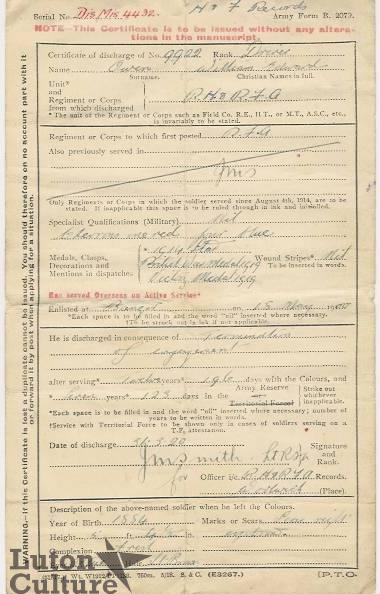 H & F Records
Serial No. Dis Mis 4432. Army Form B. 2079.
NOTE—This Certificate is to be issued without any altera-
tions in the manuscript.
Certificate of discharge of No. 9922 Rank Driver
Name Owen William Edward
Surname. Christian Names in full.
Unit*
and
Regiment or Corps
from which discharged R.H & R.F.A
* The unit of the Regiment or Corps such as Field Co. R.E., H.T., or M.T., A.S.C., etc.,
is invariably to be stated.
Regiment or Corps to which first posted R.F.A
Also previously served in
JMS
Only Regiments or Corps in which the soldier served since August 4th, 1914, are to be
stated. If inapplicable this space is to be ruled through in ink and initialled.
Specialist Qualifications (Military) Nil
Chevrons blue
Medals, Clasps,
Decorations and
Mentions in dispatches
1914 Star
British War Medal
Victory Medal
Wound Stripes* Nil
To be inserted in words.
Has served Overseas on Active Service*
Enlisted at on 15
*Each space is to be filled in and the word "nil" inserted where necessary.
†To be struck out in ink if not applicable.
He is discharged in consequence of Termination
of engagement
after serving* years* 196 days with the Colours, and
* years* days in the Army Reserve
Territorial Force†
Strike out
whichever
inapplicable.
*Each space is to be filled in and the word "nil" inserted where necessary; number of
years to be written in words.
†Service with Territorial Force to be shown only in cases of soldiers serving on a
T.F. attestation.
Date of discharge 3.20
JM Smith Lt
Signature
and
Rank.
for Officer i/c R.H & R.F.A Records.
Woolwich (Place).
Description of the above-named soldier when he left the Colours.
Year of Birth Marks or Scars
Height
Complexion Fresh
(E3267.) [P.T.O.
WARNING.—If this Certificate is lost a duplicate cannot be issued. You should therefore on no account part with it
or forward it by post when applying for a situation.
Luton
Culture